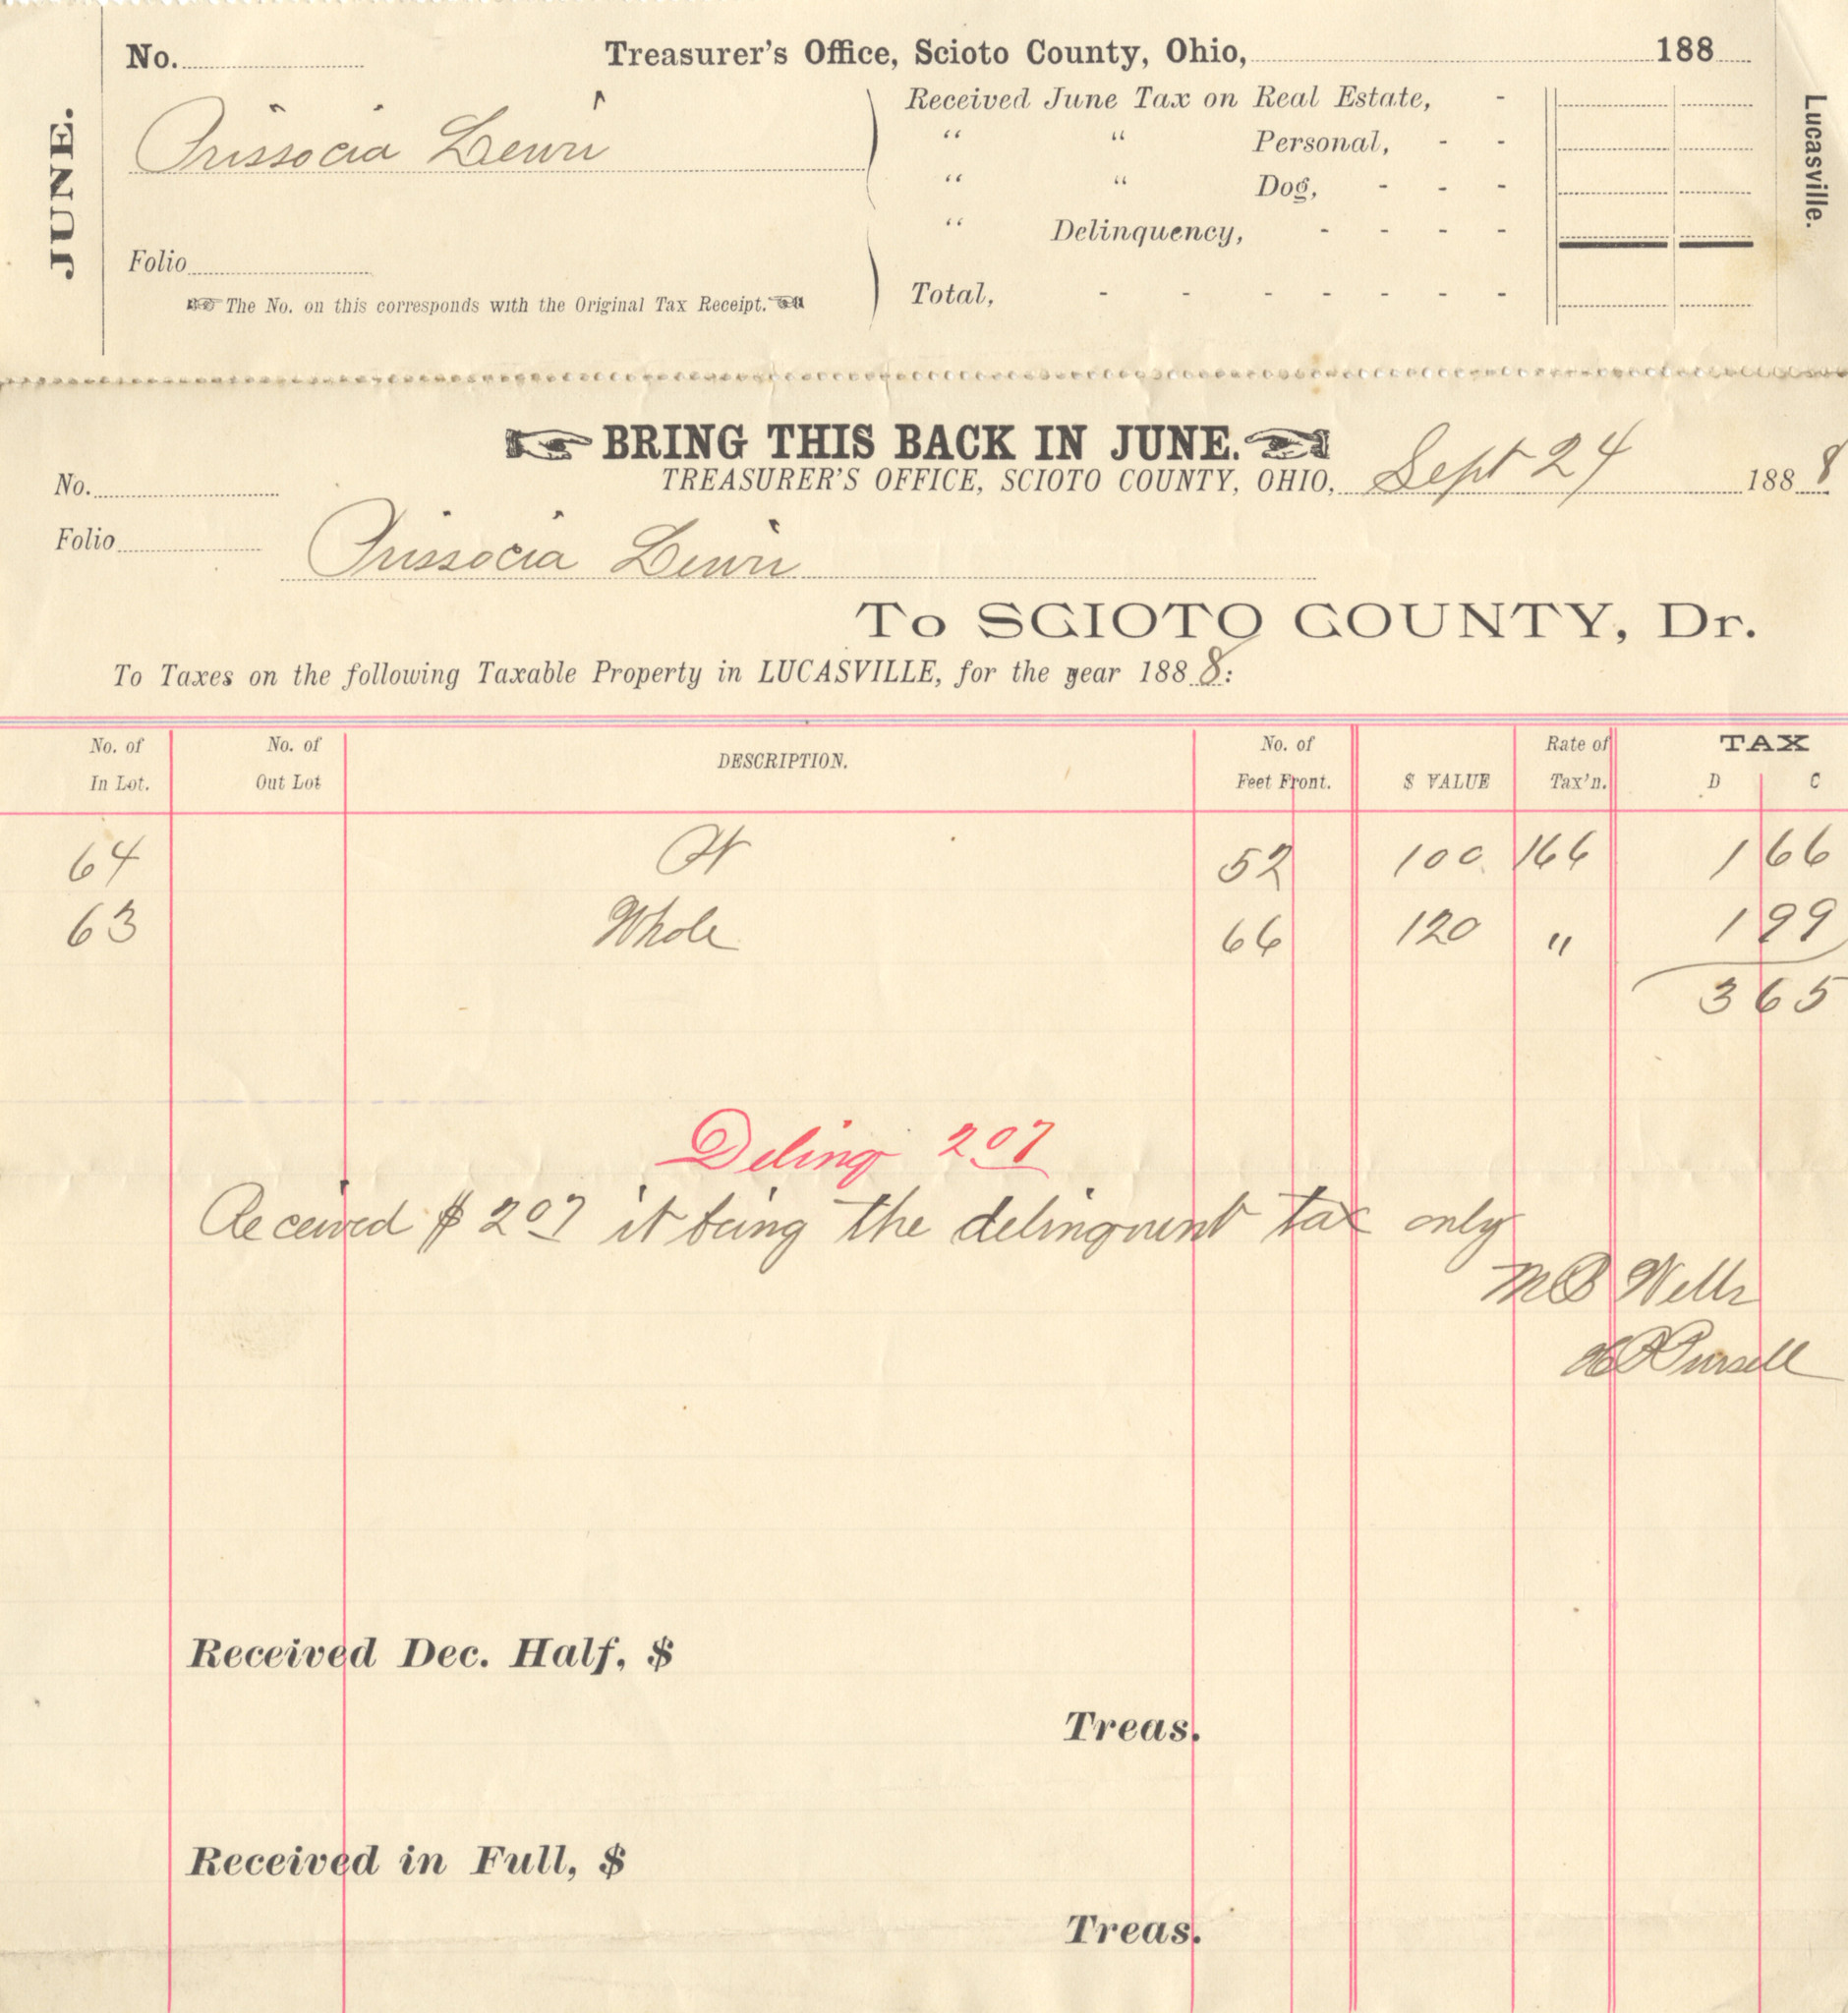 No.
Treasurer's Office, Scioto County, Ohio, 188
JUNE.
Prissocia Lewis
Folio
The No. on this corresponds with the Original Tax Receipt.
Received June Tax on Real Estate, -
" " Personal, - -
" " Dog, - - -
" Delinquency, - - - -
Total, - - - - - - -
Lucasville.
BRING THIS BACK IN JUNE.
No.
TREASURER'S OFFICE, SCIOTO COUNTY, OHIO, Sept 24 1888
Folio
Prissocia Lewis
To SCIOTO COUNTY, Dr.
To Taxes on the following Taxable Property in LUCASVILLE, for the year 1888:
No. of In Lot. No. of Out Lot DESCRIPTION. No. of Feet Front. $ VALUE Rate of Tax'n. TAX D C
64 52 100 166 1 66
63 Whole 66 120 " 1 99
3 65
Delinq 2 07
Received $ 2 07 it being the delinquent tax only
M B Wells
Pursell
Received Dec. Half, $
Treas.
Received in Full, $
Treas.